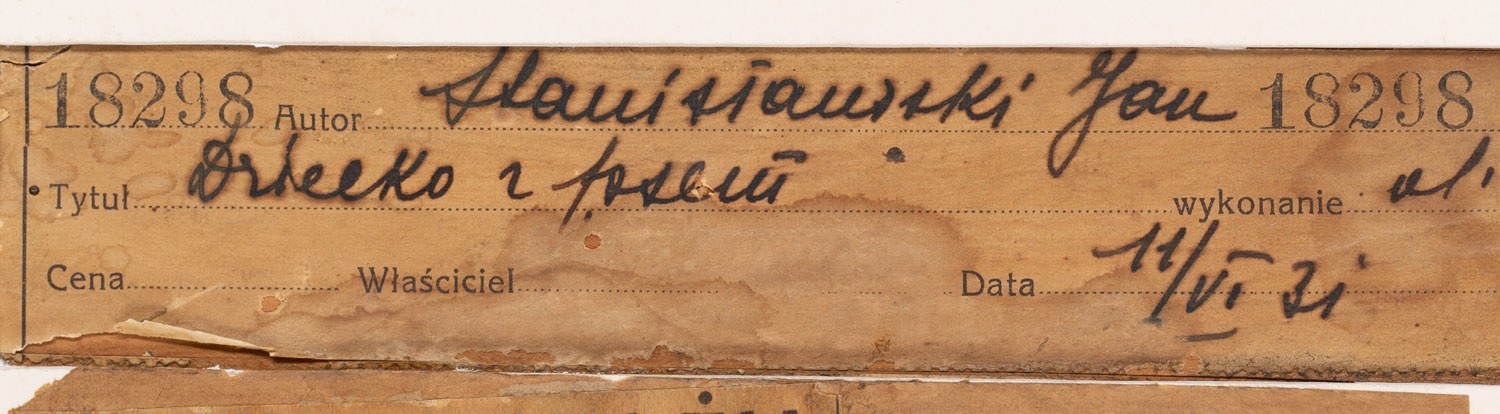 18298 Autor Stanisławski Jan 18298
Tytuł Dziecko z psem wykonanie ol.
Cena Właściciel Data 11/VI 31